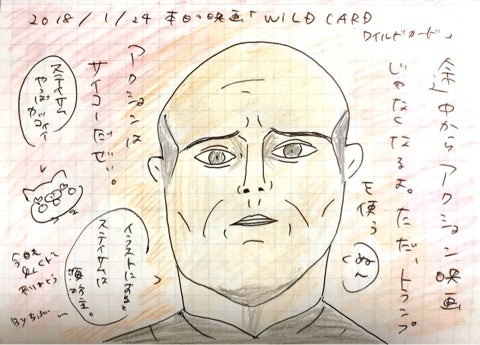 2018/1/24 本日の映画「WILD CARD
ワイルドカード」
途中からアクション映画
じゃなくなるよ。ただ、トランプ
を使う
アクションは
サイコーだぜぃ。
ステイサム
イラストにすると
ステイサムは
海坊主。
今日も
ありがとう
By